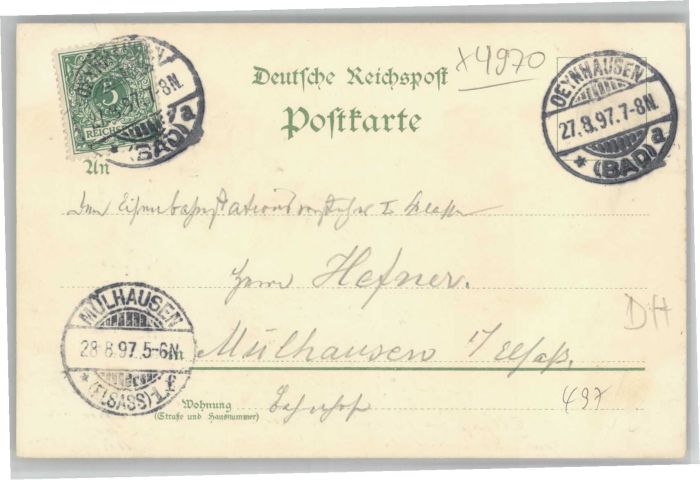 Deutsche Reichspost
Postkarte
x4970
5
REICHS
OEYNHAUSEN
27.8.97.7-8N.
* (BAD) a
An
Dem Eisenbahnstationsvorsteher I. Klasse
Herrn Hefner.
Mülhausen i/Elsaß.
Bahnhof
MÜLHAUSEN
28 8.97.5-6N.
* (ELSASS) *
Wohnung
(Straße und Hausnummer)
DH
497